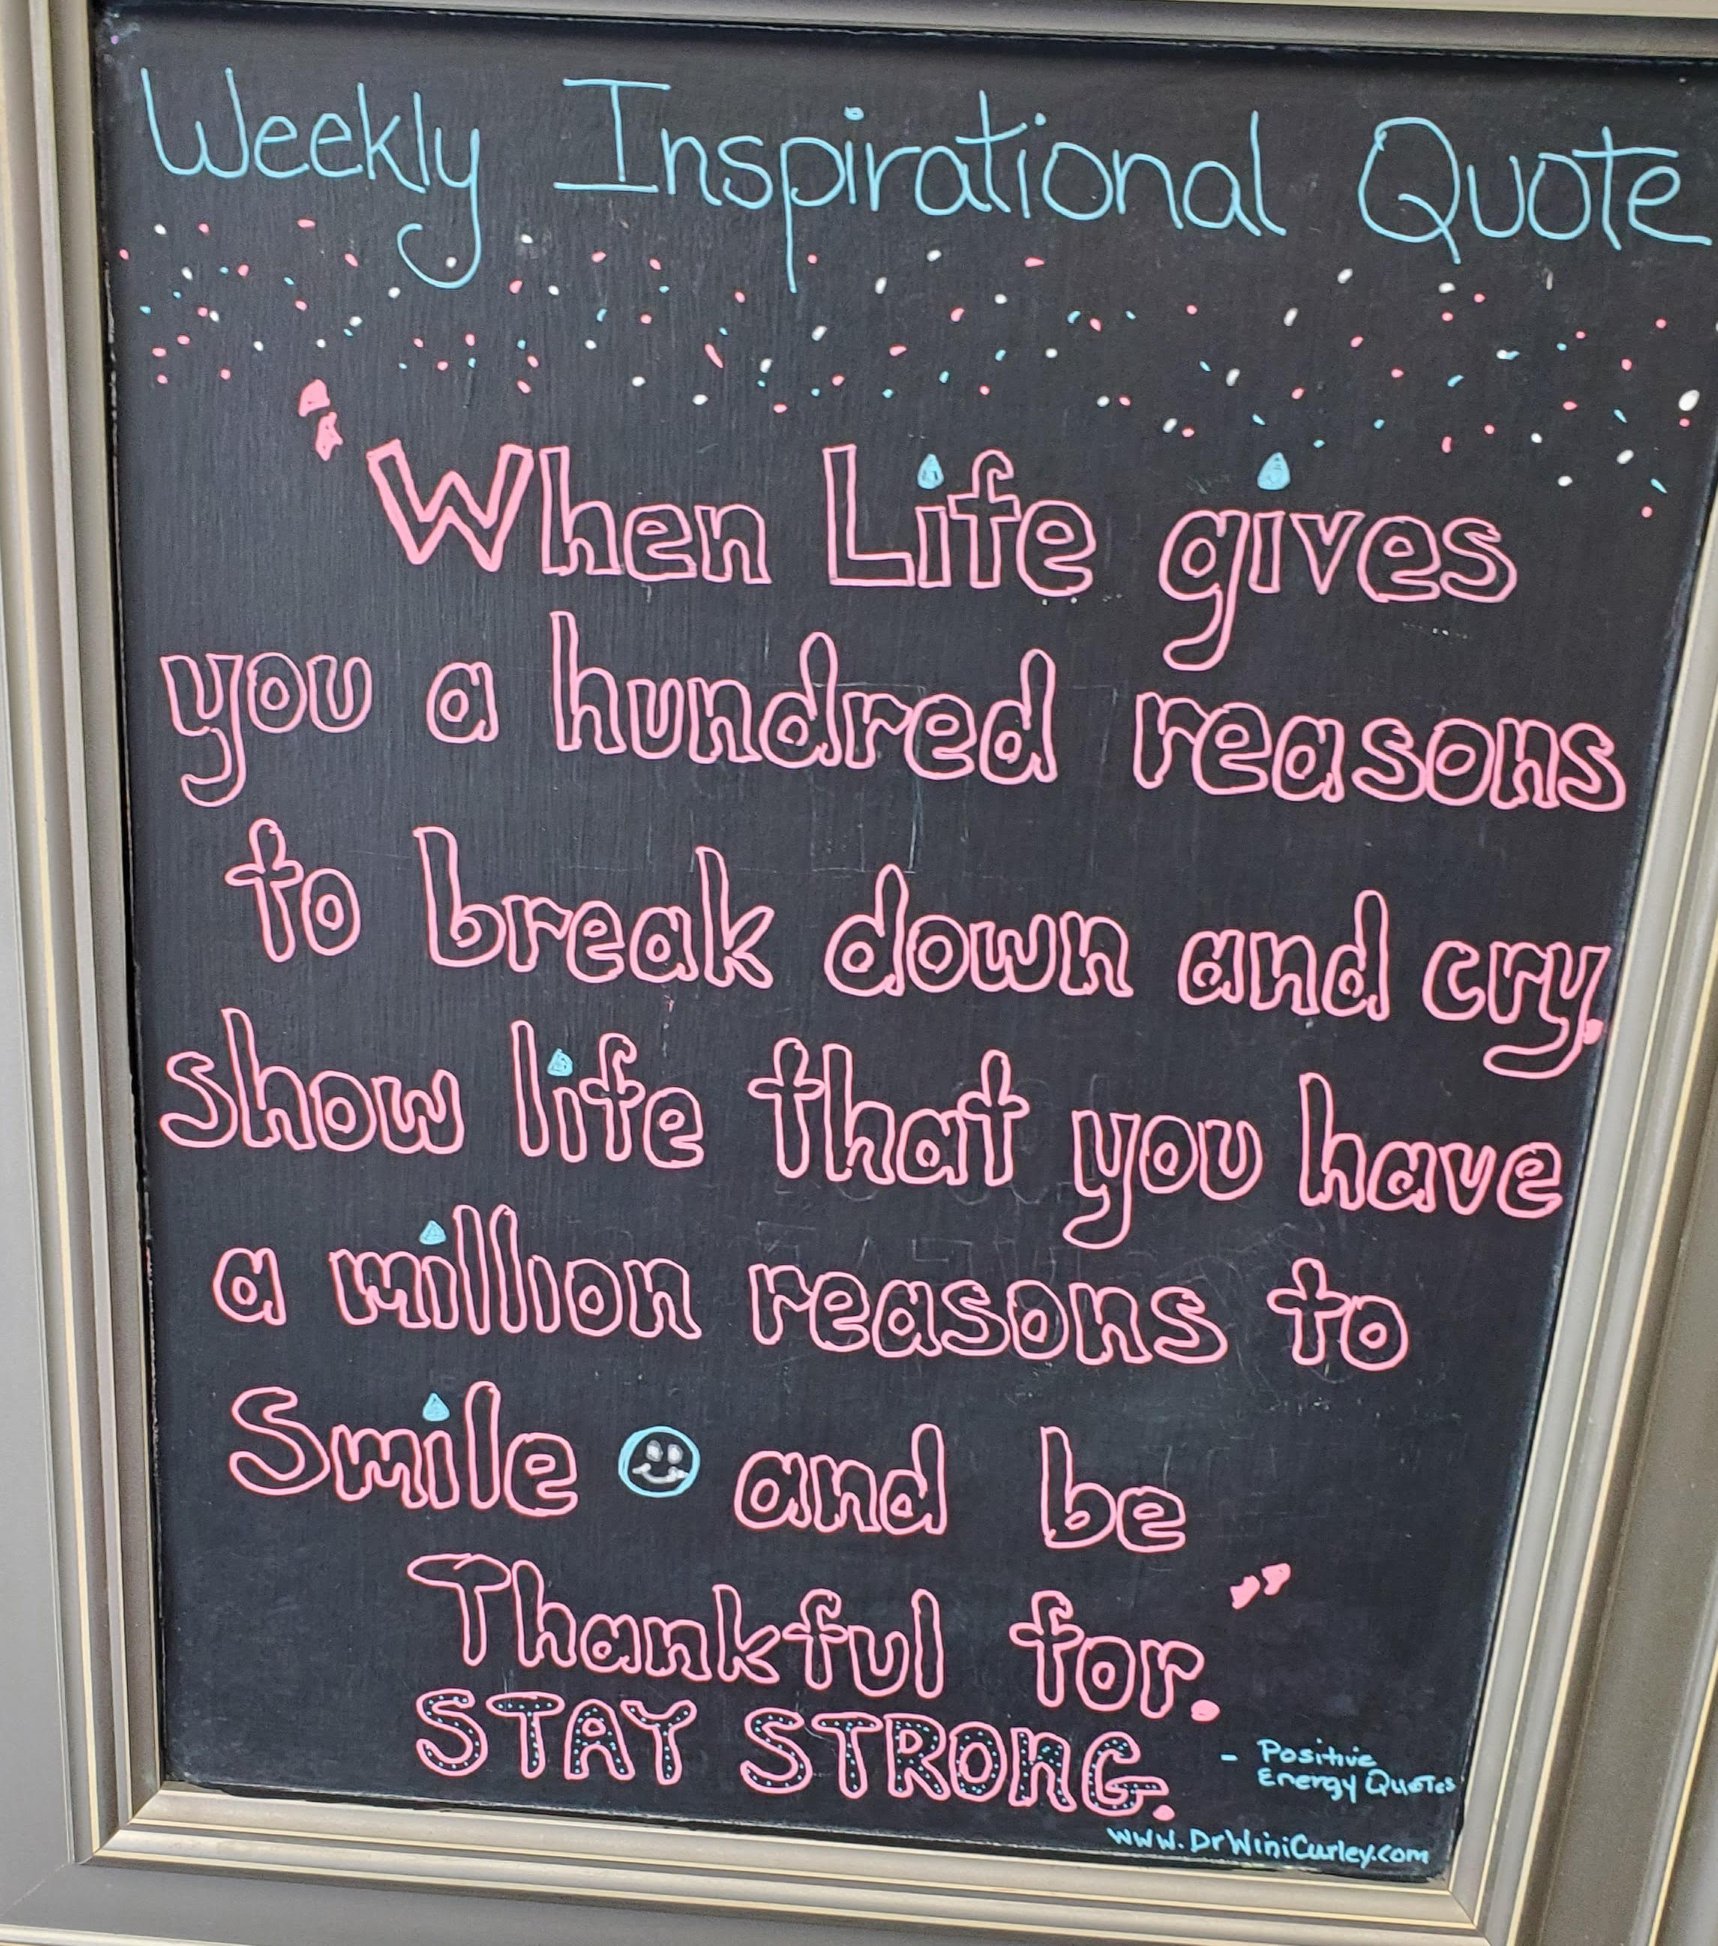 Weekly Inspirational Quote
"When Life gives
you a hundred reasons
to break down and cry,
show life that you have
a million reasons to
Smile and be
Thankful for."
STAY STRONG.
- Positive
Energy Quotes
www.DrWiniCurley.com